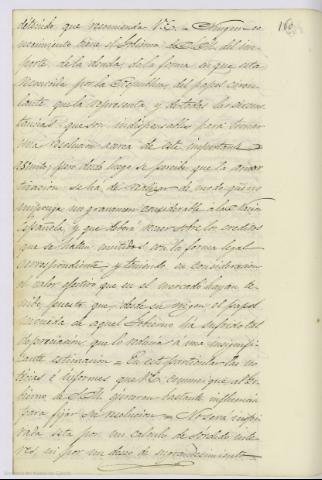 detenido, que recomienda V.E. = Ningun co
nocimiento tiene el Gobierno de S.M. del im
porte de la deuda, de la forma en que está
reconocida por la República, del papel circu
lante que la representa, y de todas las circuns
tancias que son indispensables para tomar
una resolucion acerca de este importante
asunto; pero desde luego se percibe que la amor
tizacion se ha de realizar de modo que no
imponga un gravamen considerable a la Nacion
Española, y que deberá versar sobre los creditos
que se hallen emitidos con la forma legal
correspondiente y teniendo en consideracion
el valor efectivo que en el mercado hayan te
nido, puesto que desde su origen el papel
moneda de aquel Gobierno ha sufrido tal
depreciacion que lo reducia á una insignifi
cante estimacion = En este particular las no
ticias é informes que V.E. comunique al Go
bierno de S.M. ejerceran bastante influencia
para fijar su resolucion = No será inspi
rada esta por un calculo de sórdido inte
res, ni por un deseo de engrandecimiento
160